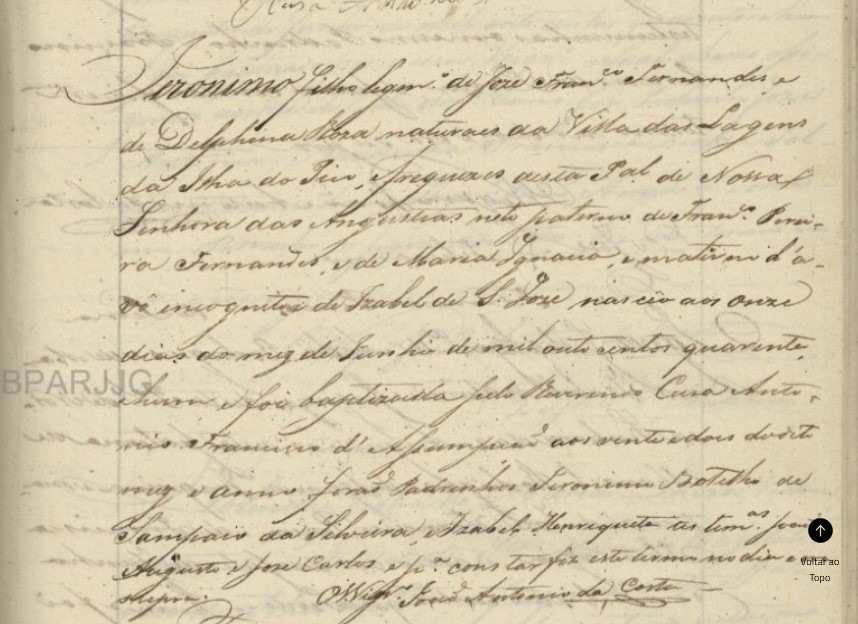 Jeronimo filho legm.º de Joze Fran.co Fernandes e
de Delphina Roza naturaes da Villa das Lagens
da Ilha do Pico, freguezes desta Pal. de Nossa
Senhora das Angustias neto paterno de Fran.co Perei-
ra Fernandes, e de Maria Ignacia, e materno d'a-
vô incognito e de Izabel de S. Joze nasceo aos onze
dias do mez de Junho de mil outo centos quarenta
e hum e foi baptizado pelo Reverendo Cura Anto-
nio Francisco d'Assumpção aos vinte e dois do dito
mez e anno forão Padrinhos Jeronimo Botelho de
Sampaio da Silveira, e Izabel Henriqueta as tem.as João
Augusto e Joze Carlos, e p.a constar fiz este termo no dia e
supra.
O Vigr.o João Antonio da Costa
BPARJJG
Voltar ao
Topo